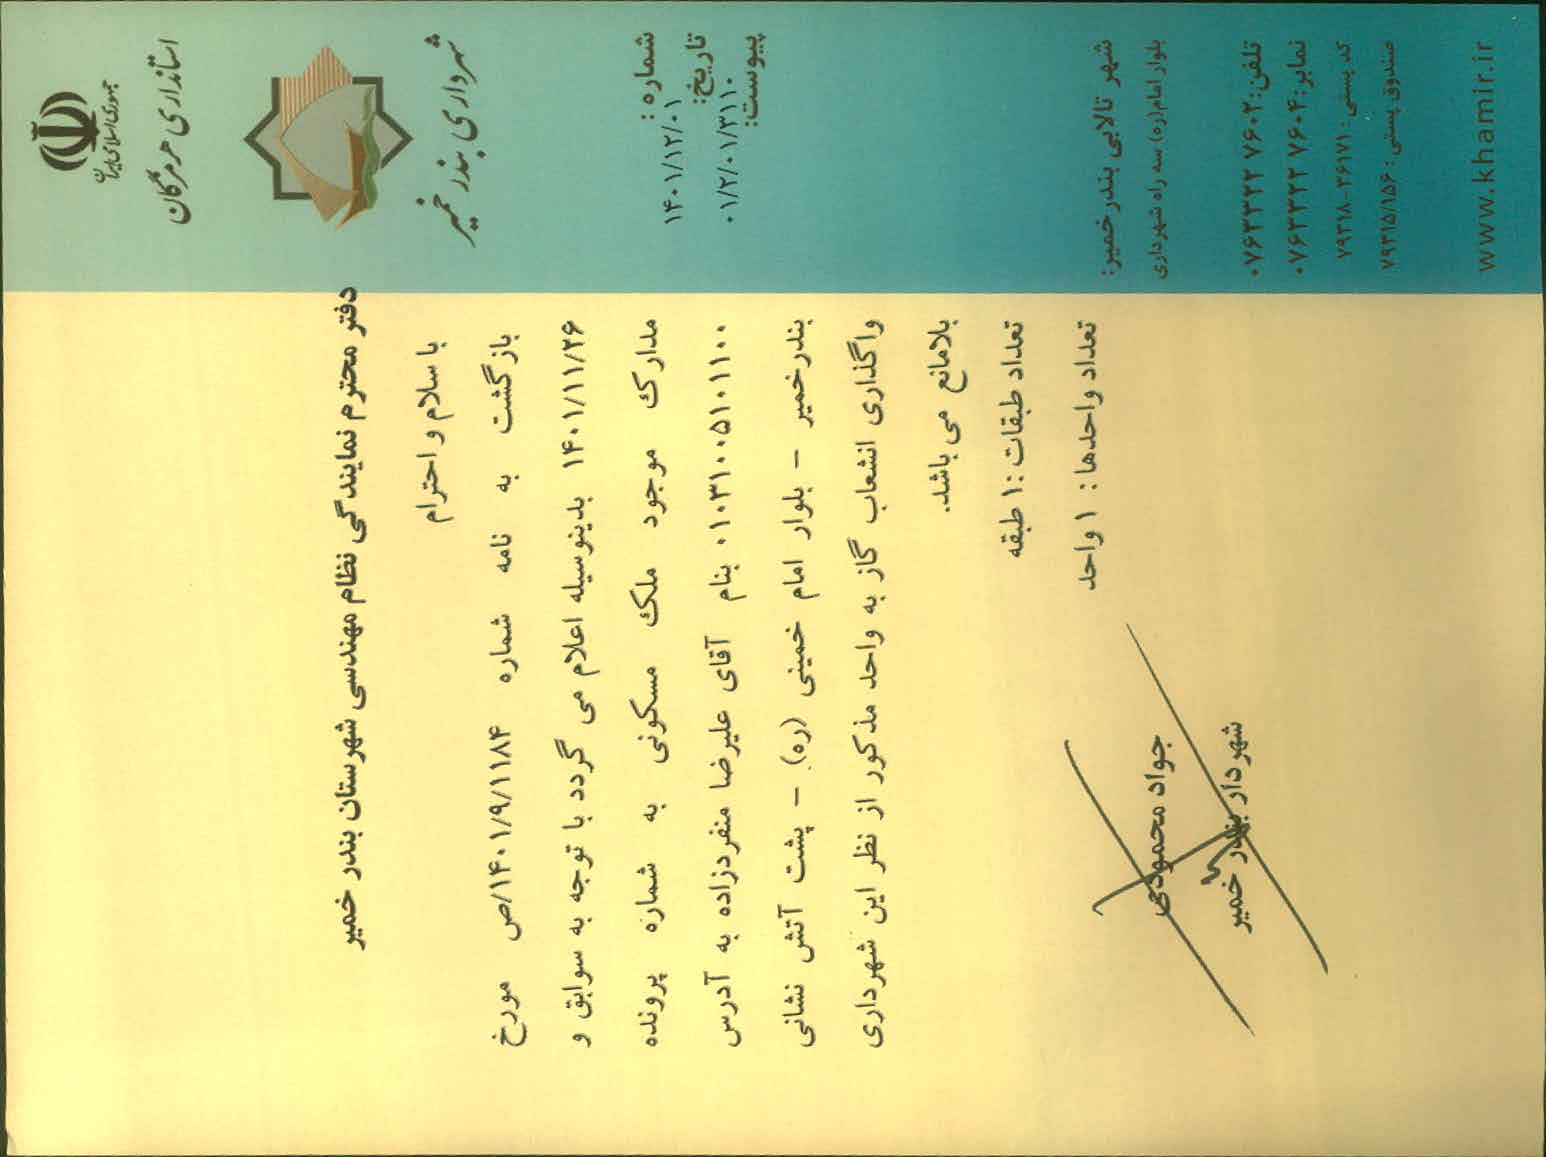 جمهوری اسلامی ایران
استانداری هرمزگان
شهرداری بندر خمیر
شماره:
۱۴۰۱/۱۲/۰۱
تاریخ:
۰۱/۲/۰۱/۳۱۱۰
پیوست:
شهر تالابی بندرخمیر:
بلوار امام(ره) سه راه شهرداری
تلفن: ۰۷۶۳۳۲۲۷۶۰۲
نمابر: ۰۷۶۳۳۲۲۷۶۰۴
کد پستی: ۷۹۳۱۸-۳۶۱۷۱
صندوق پستی: ۷۹۳۱۵/۱۵۶
www.khamir.ir
دفتر محترم نمایندگی نظام مهندسی شهرستان بندر خمیر
با سلام و احترام
بازگشت به نامه شماره ۱۴۰۱/۹/۱۱۸۴/ص مورخ
۱۴۰۱/۱۱/۲۶ بدینوسیله اعلام می گردد با توجه به سوابق و
مدارک موجود ملک مسکونی به شماره پرونده
۰۱۰۳۱۰۰۵۱۰۱۱۰۰ بنام آقای علیرضا منفردزاده به آدرس
بندرخمیر - بلوار امام خمینی (ره) - پشت آتش نشانی
واگذاری انشعاب گاز به واحد مذکور از نظر این شهرداری
بلامانع می باشد.
تعداد طبقات :۱ طبقه
تعداد واحدها : ۱ واحد
جواد محمودی
شهردار بندر خمیر